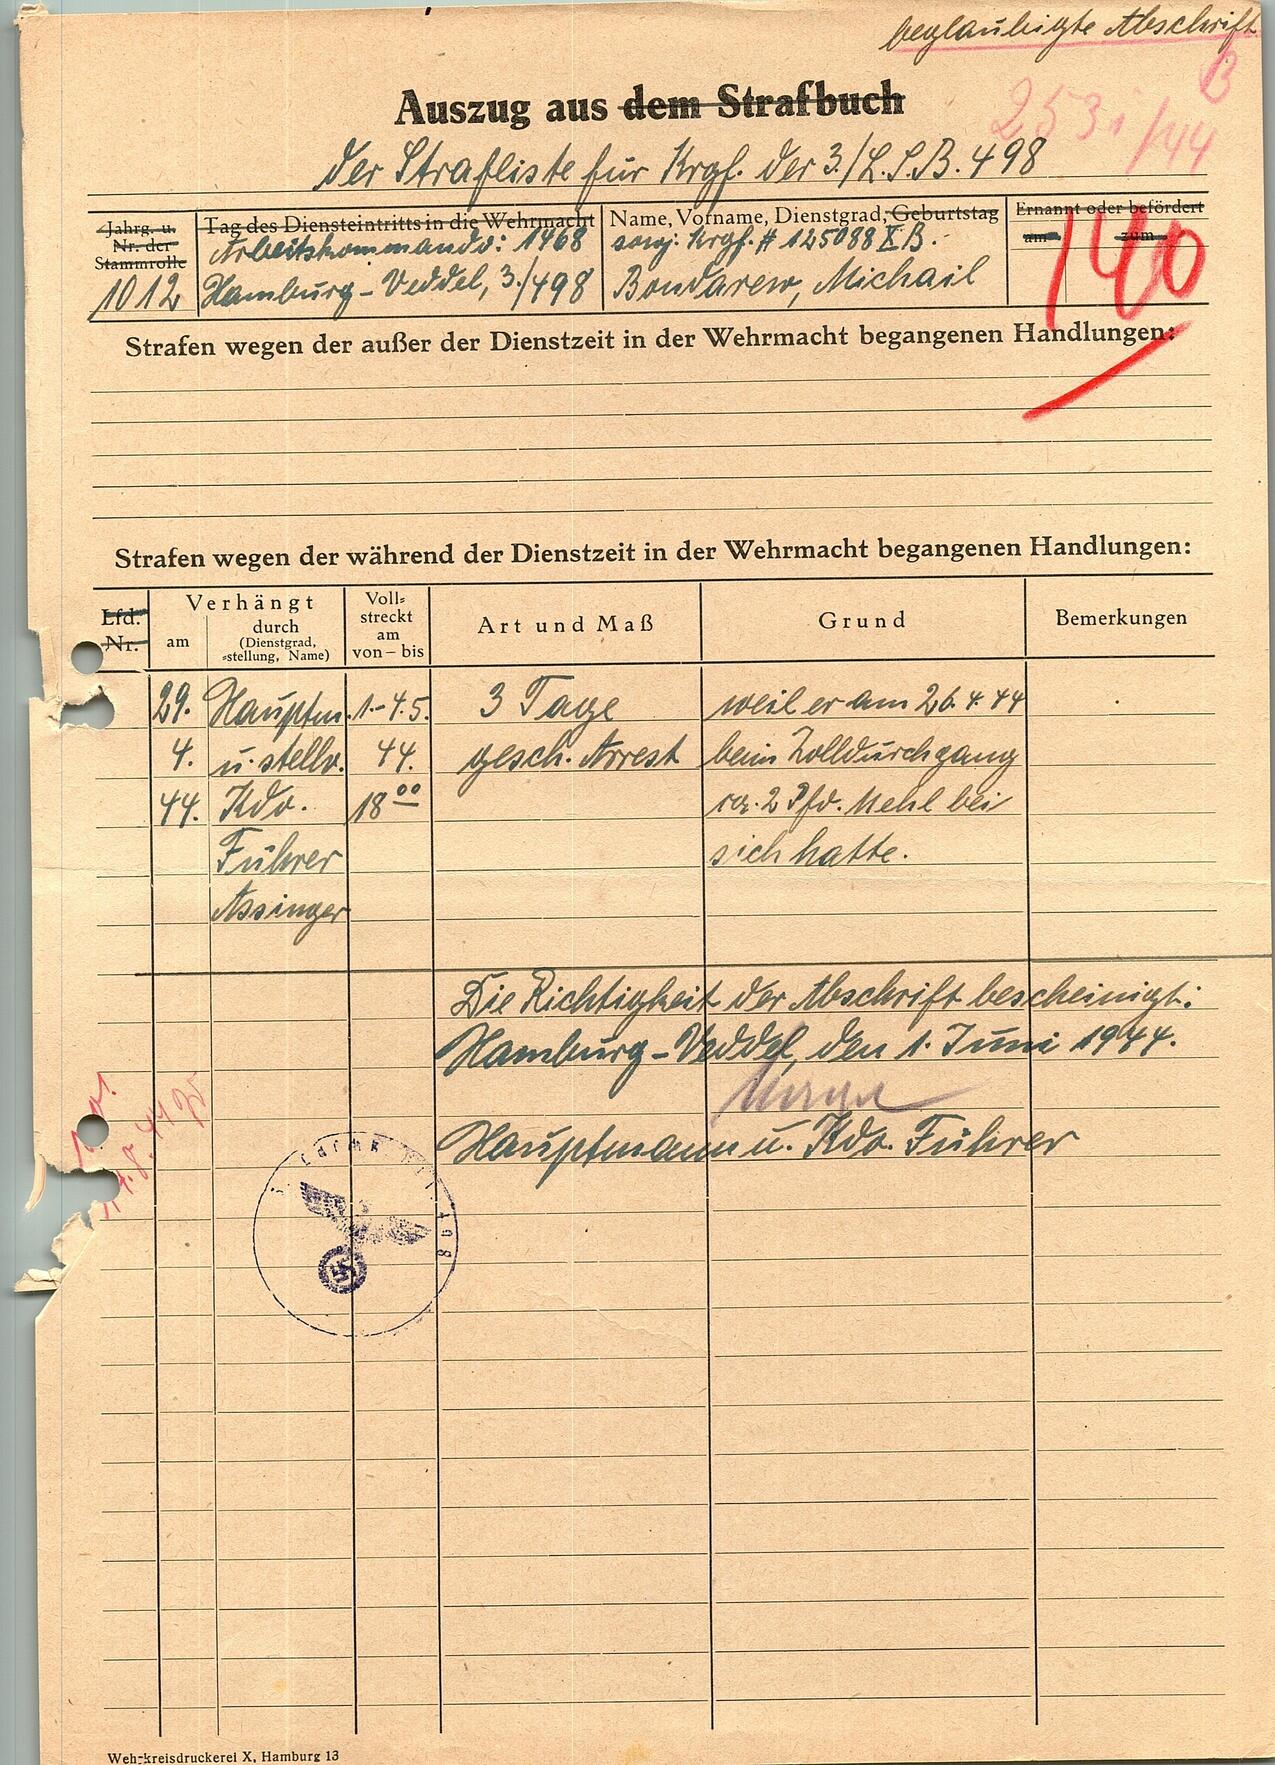 beglaubigte Abschrift
B
253i/44
Auszug aus dem Strafbuch
der Strafliste für Krgf. der 3./L.S.B. 498
Jahrg. u. Nr. der Stammrolle
1012
Tag des Diensteintritts in die Wehrmacht
Arbeitskommando: 1468
Hamburg-Veddel, 3./498
Name, Vorname, Dienstgrad, Geburtstag
sowj. Krgf. # 125088 X B.
Bondarew, Michail
Ernannt oder befördert
am zum
140
Strafen wegen der außer der Dienstzeit in der Wehrmacht begangenen Handlungen:
Strafen wegen der während der Dienstzeit in der Wehrmacht begangenen Handlungen:
Lfd. Nr.
Verhängt
am
durch
(Dienstgrad,
=stellung, Name)
Voll=
streckt
am
von – bis
Art und Maß
Grund
Bemerkungen
29. Hauptm. 1.-4.5. 3 Tage weil er am 26.4.44
4. u. stellv. 44. gesch. Arrest beim Zolldurchgang
44. Kdo. 18 00 ca. 2 Pfd. Mehl bei
Führer sich hatte.
Assinger
Die Richtigkeit der Abschrift bescheinigt:
Hamburg-Veddel, den 1. Juni 1944.
Hauptmann u. Kdo. Führer
498
Wehrkreisdruckerei X, Hamburg 13